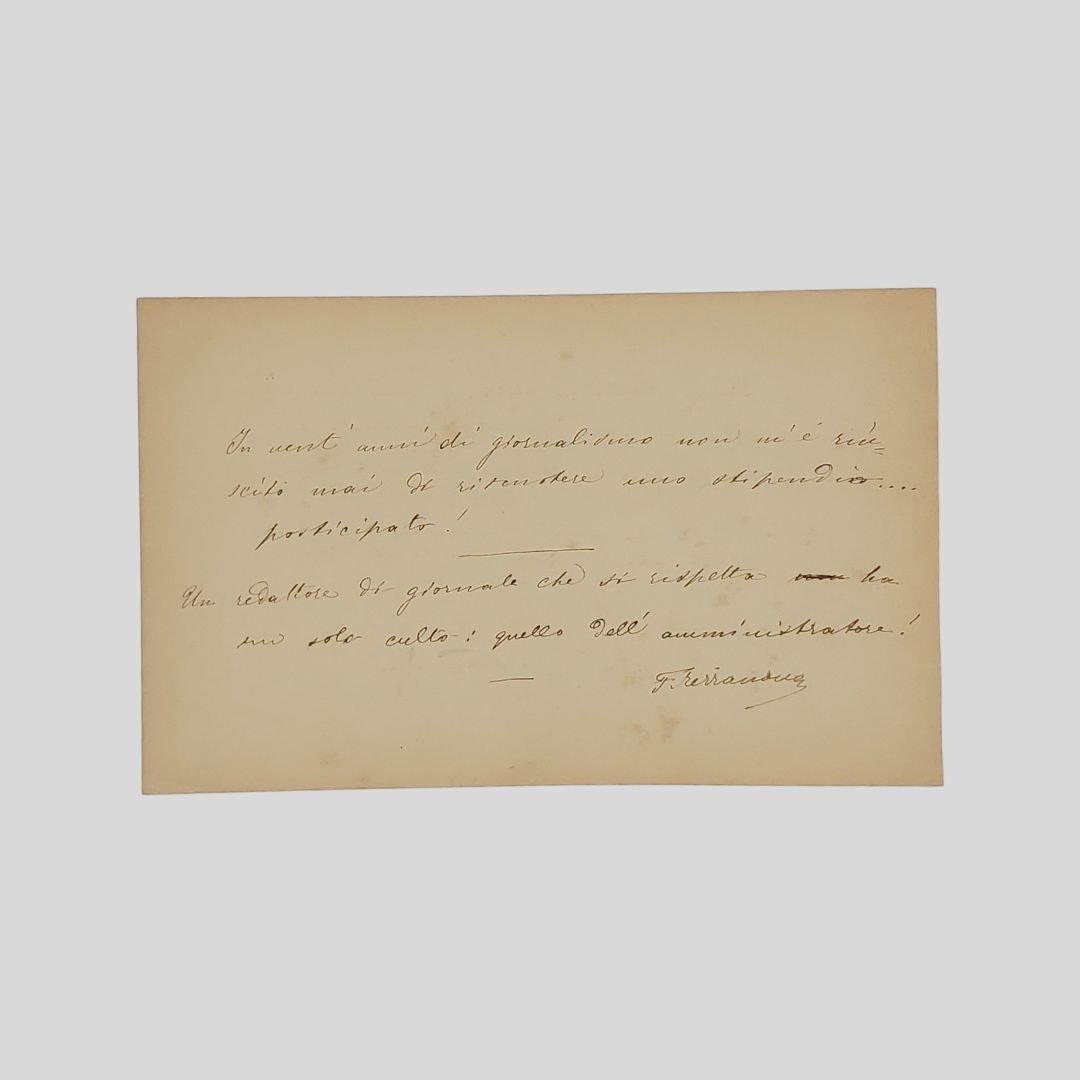 In vent' anni di giornalismo non m'è riu=
scito mai di riscuotere uno stipendio....
posticipato!
Un redattore di giornale che si rispetta non ha
un solo culto: quello dell' amministratore!